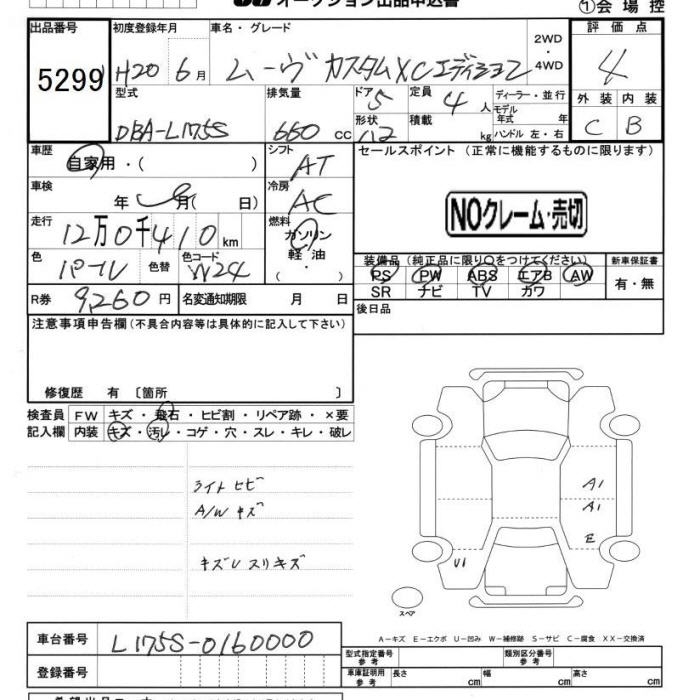 オークション出品申込書 ①会場控
出品番号 初度登録年月 車名・グレード 2WD ・ 4WD 評価点
5299 H20 6月 ムーヴ カスタムXCエディション 4
型式 排気量 ドア 5 定員 4人 ディーラー・並行 外装 内装
モデル年式 年
DBA-L175S 660cc 形状 積載 kg ハンドル 左・右 C B
車歴 自家用・( ) シフト AT セールスポイント (正常に機能するものに限ります)
車検 年 月( 日) 冷房 AC
NOクレーム・売切
走行 12万0千410km 燃料 ガソリン
軽油・( )
色 パール 色替 色コード W24
装備品(純正品に限り○をつけてください) 新車保証書
PS PW ABS エアB AW 有・無
SR ナビ TV カワ
R券 9,260円 名変通知期限 月 日 後日品
注意事項申告欄(不具合内容等は具体的に記入して下さい)
修復歴 有 〔箇所 〕
検査員 FW キズ・飛石・ヒビ割・リペア跡・×要
記入欄 内装 キズ・汚レ・コゲ・穴・スレ・キレ・破レ
ライトヒビ
A/W キズ
A1
A1
E
キズUスリキズ
U1
スペア
A－キズ E－エクボ U－凹み W－補修跡 S－サビ C－腐食 XX－交換済
車台番号 L175S-0160000
型式指定番号 参考 類別区分番号 参考
登録番号 車庫証明用 参考 長さ cm 幅 cm 高さ cm